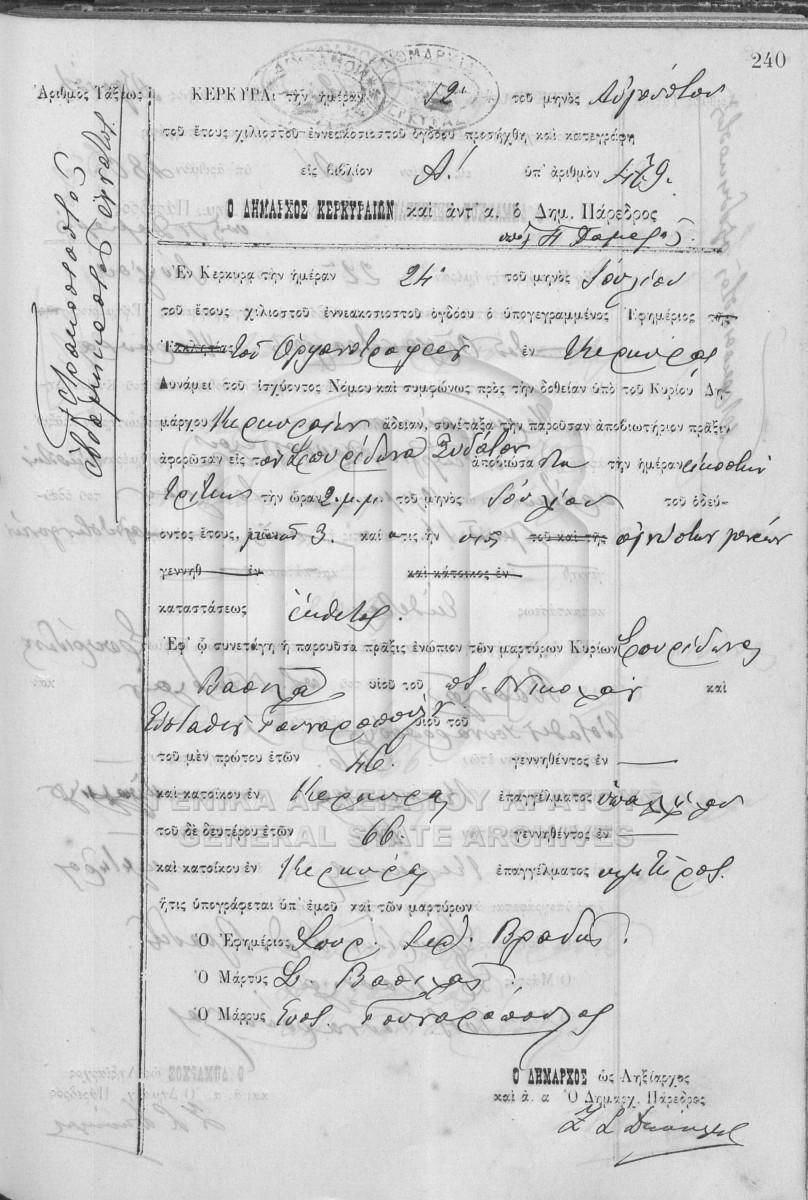 240
Ἀριθμὸς Τάξεως
ΚΕΡΚΥΡΑ τὴν ἡμέραν 12' τοῦ μηνὸς Αὐγούστου
τοῦ ἔτους χιλιοστοῦ ἐννεακοσιοστοῦ ὀγδόου προσήχθη καὶ κατεγράφη
εἰς βιβλίον Α! ὑπ' ἀριθμὸν 479.
Ὁ ΔΗΜΑΡΧΟΣ ΚΕΡΚΥΡΑΙΩΝ καὶ ἀντ' α. ὁ Δημ. Πάρεδρος
Ἐν Κερκυρᾳ τὴν ἡμέραν 24' τοῦ μηνὸς Ἰουλίου
τοῦ ἔτους χιλιοστοῦ ἐννεακοσιοστοῦ ὀγδόου ὁ ὑπογεγραμμένος Ἐφημέριος τῆς
Ἐκκλησίας τοῦ Ὀρφανοτροφείου ἐν Κερκύρᾳ
Δυνάμει τοῦ ἰσχύοντος Νόμου καὶ συμφώνως πρὸς τὴν δοθεῖσαν ὑπὸ τοῦ Κυρίου Δη-
μάρχου Κερκυραίων ἄδειαν, συνέταξα τὴν παροῦσαν ἀποβιωτήριον πρᾶξιν
ἀφορῶσαν εἰς τὸν Σπυρίδωνα ἀποβιώσαντα τὴν ἡμέραν εἰκοστὴν
τρίτην τὴν ὥραν 2 μ.μ. τοῦ μηνὸς Ἰουλίου τοῦ ὁδεύ-
οντος ἔτους, 3. καὶ ὅστις ἦν υἱὸς τοῦ καὶ τῆς ἀγνώστων γονέων
γεννηθ ἐν καὶ κάτοικος ἐν
καταστάσεως ἔκθετος.
Ἐφ' ᾧ συνετάγη ἡ παροῦσα πρᾶξις ἐνώπιον τῶν μαρτύρων Κυρίων Σπυρίδωνα
Βασιλᾶ υἱοῦ τοῦ ποτ. Νικολάου καὶ
Εὐσταθίου Γουναροπούλου υἱοῦ τοῦ
τοῦ μὲν πρώτου ἐτῶν 46. γεννηθέντος ἐν —
καὶ κατοίκου ἐν Κερκύρᾳ ἐπαγγέλματος ὑπαλλήλου
τοῦ δὲ δευτέρου ἐτῶν 66. γεννηθέντος ἐν —
καὶ κατοίκου ἐν Κερκύρᾳ ἐπαγγέλματος
ἥτις ὑπογράφεται ὑπ' ἐμοῦ καὶ τῶν μαρτύρων
Ὁ Ἐφημέριος Σπυρ. Ἱερ.
Ὁ Μάρτυς Σ. Βασιλᾶς
Ὁ Μάρρυς Εὐσ. Γουναρόπουλος
Ὁ ΔΗΜΑΡΧΟΣ ὡς Ληξίαρχος
καὶ ἀ. α Ὁ Δημαρχ. Πάρεδρος
ΓΕΝΙΚΑ ΑΡΧΕΙΑ ΤΟΥ ΚΡΑΤΟΥΣ
GENERAL STATE ARCHIVES